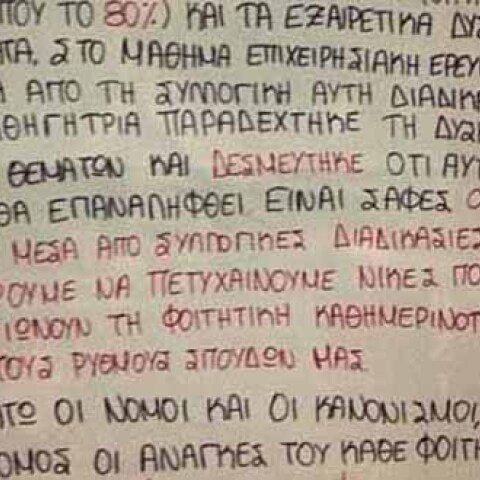 ΠΟΥ ΤΟ 80%) ΚΑΙ ΤΑ ΕΞΑΙΡΕΤΙΚΑ ΔΥΣ
ΣΤΟ ΜΑΘΗΜΑ ΕΠΙΧΕΙΡΗΣΙΑΚΗ ΕΡΕΥ
ΑΠΟ ΤΗ ΣΥΛΛΟΓΙΚΗ ΑΥΤΗ ΔΙΑΔΙΚΑ
ΑΘΗΓΗΤΡΙΑ ΠΑΡΑΔΕΧΤΗΚΕ ΤΗ ΔΥΣΚ
ΘΕΜΑΤΩΝ ΚΑΙ ΔΕΣΜΕΥΤΗΚΕ ΟΤΙ ΑΥΤ
ΘΑ ΕΠΑΝΑΛΗΦΘΕΙ ΕΙΝΑΙ ΣΑΦΕΣ Ο
ΜΕΣΑ ΑΠΟ ΣΥΛΛΟΓΙΚΕΣ ΔΙΑΔΙΚΑΣΙΕΣ
ΡΟΥΜΕ ΝΑ ΠΕΤΥΧΑΙΝΟΥΜΕ ΝΙΚΕΣ ΠΟ
ΙΩΝΟΥΝ ΤΗ ΦΟΙΤΗΤΙΚΗ ΚΑΘΗΜΕΡΙΝΟΤ
ΤΟΥΣ ΡΥΘΜΟΥΣ ΣΠΟΥΔΩΝ ΜΑΣ
ΟΙ ΝΟΜΟΙ ΚΑΙ ΟΙ ΚΑΝΟΝΙΣΜΟΙ,
ΟΜΟΣ ΟΙ ΑΝΑΓΚΕΣ ΤΟΥ ΚΑΘΕ ΦΟΙΤΗ